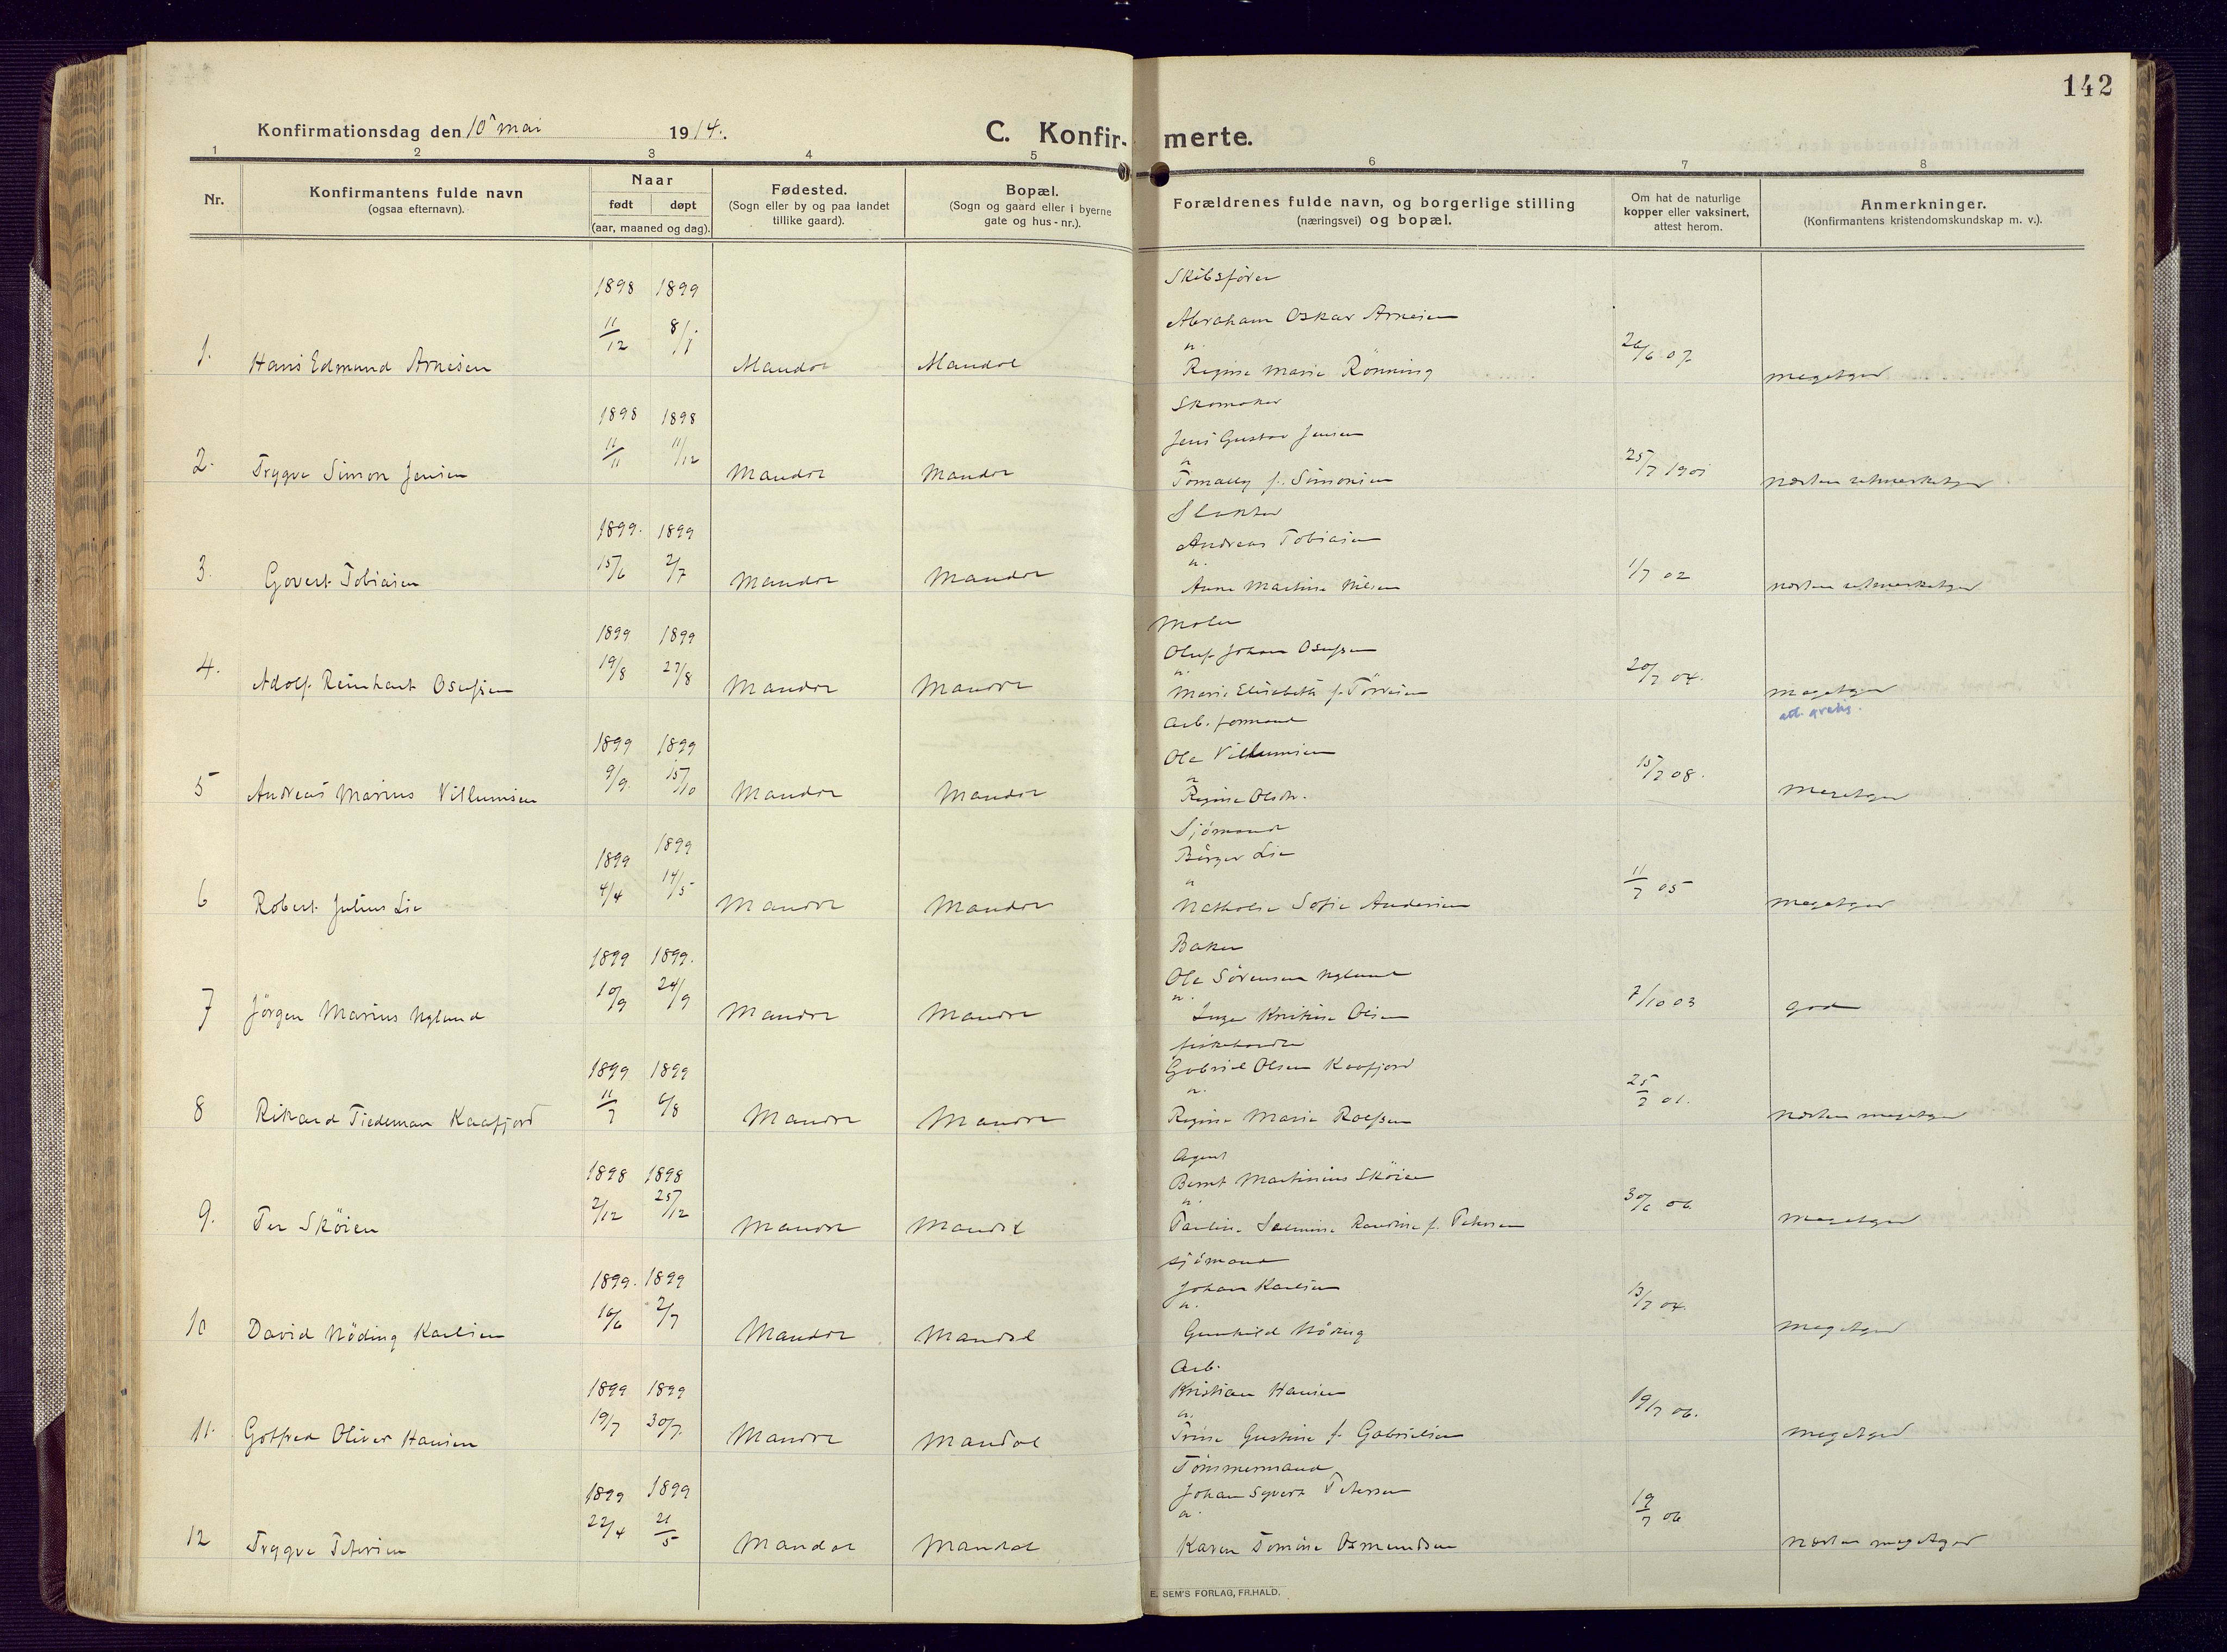 142
Konfirmationsdag den 10 mai 1914.
C. Konfir- merte.
1 2 3 4 5 6 7 8
Nr.
Konfirmantens fulde navn
(ogsaa efternavn).
Naar
født døpt
(aar, maaned og dag).
Fødested.
(Sogn eller by og paa landet
tillike gaard).
Bopæl.
(Sogn og gaard eller i byerne
gate og hus-nr.).
Forældrenes fulde navn, og borgerlige stilling
(næringsvei) og bopæl.
Om hat de naturlige
kopper eller vaksinert,
attest herom.
Anmerkninger.
(Konfirmantens kristendomskundskap m. v.).
Skibsfører
1898 1899
Abraham Oskar Arnesen
11/12 8/1
n.
26/6 07
1. Hans Edmund Arnesen Mandal Mandal Regine Marie Rönning megetgod
Skomaker
1898 1898
Jens Gustav Jensen
11/11 11/12
n
25/7 1901
2. Trygve Simon Jensen Mandal Mandal Tomally f. Simonsen næsten utmerketgod
Slakter
1899. 1899
Andreas Tobiasen
15/6 2/7
n.
1/7 02
3. Govert Tobiasen Mandal Mandal Anne Martine Nilsen næsten utmerketgod
Maler
1899 1899
Oluf Johan Osufsen
19/8 27/8
n.
20/7 04.
4. Adolf Reinhart Osufsen Mandal Mandal Marie Elisabeth f. megetgod
att. gratis.
Arb. formand
1899 1899
Ole Villumsen
9/9. 15/10
n
15/7 08.
5 Andreas Marius Villumsen Mandal Mandal Regine Olsdtr. Megetgod
Sjömand
1899 1899
Börger Lie
4/4 14/5
n
11/7 05
6 Robert Julius Lie Mandal Mandal Nathalie Sofie Andersen megetgod
Baker
1899 1899.
Ole Sörensen Nyland
10/9 24/9
n.
7/10 03
7 Jörgen Marius Nyland Mandal Mandal Inger Kristine Olsen god
fiskehandler
1899 1899
Gabriel Olsen Kaafjord
11/7 6/8
n.
25/7 01.
8 Rikard Tiedeman Kaafjord Mandal Mandal Regine Marie Roefsen næsten megetgod
Agent
1898 1898
Bernt Martinius Sköien
2/12 25/12
n.
30/6 06
9. Per Sköien Mandal Mandal Pauline f. Petersen Megetgod
sjömand
1899. 1899
Johan Karlsen
16/6 2/7
n.
13/7 04.
10 David Nöding Karlsen Mandal Mandal Gunhild Nöding megetgod
Arb.
1899 1899
Kristian Hansen
19/7 30/7.
n.
19/7 06.
11. Gotfred Oliver Hansen Mandal Mandal Trine Gustine f. Gabrielsen megetgod
Tömmermand
1899 1899
Johan Syvert Petersen
22/4 21/5
n.
19/7 06
12 Trygve Petersen Mandal Mandal Karen Tomine Osmundsen næsten megetgod
E. SEM'S FORLAG, FR.HALD.